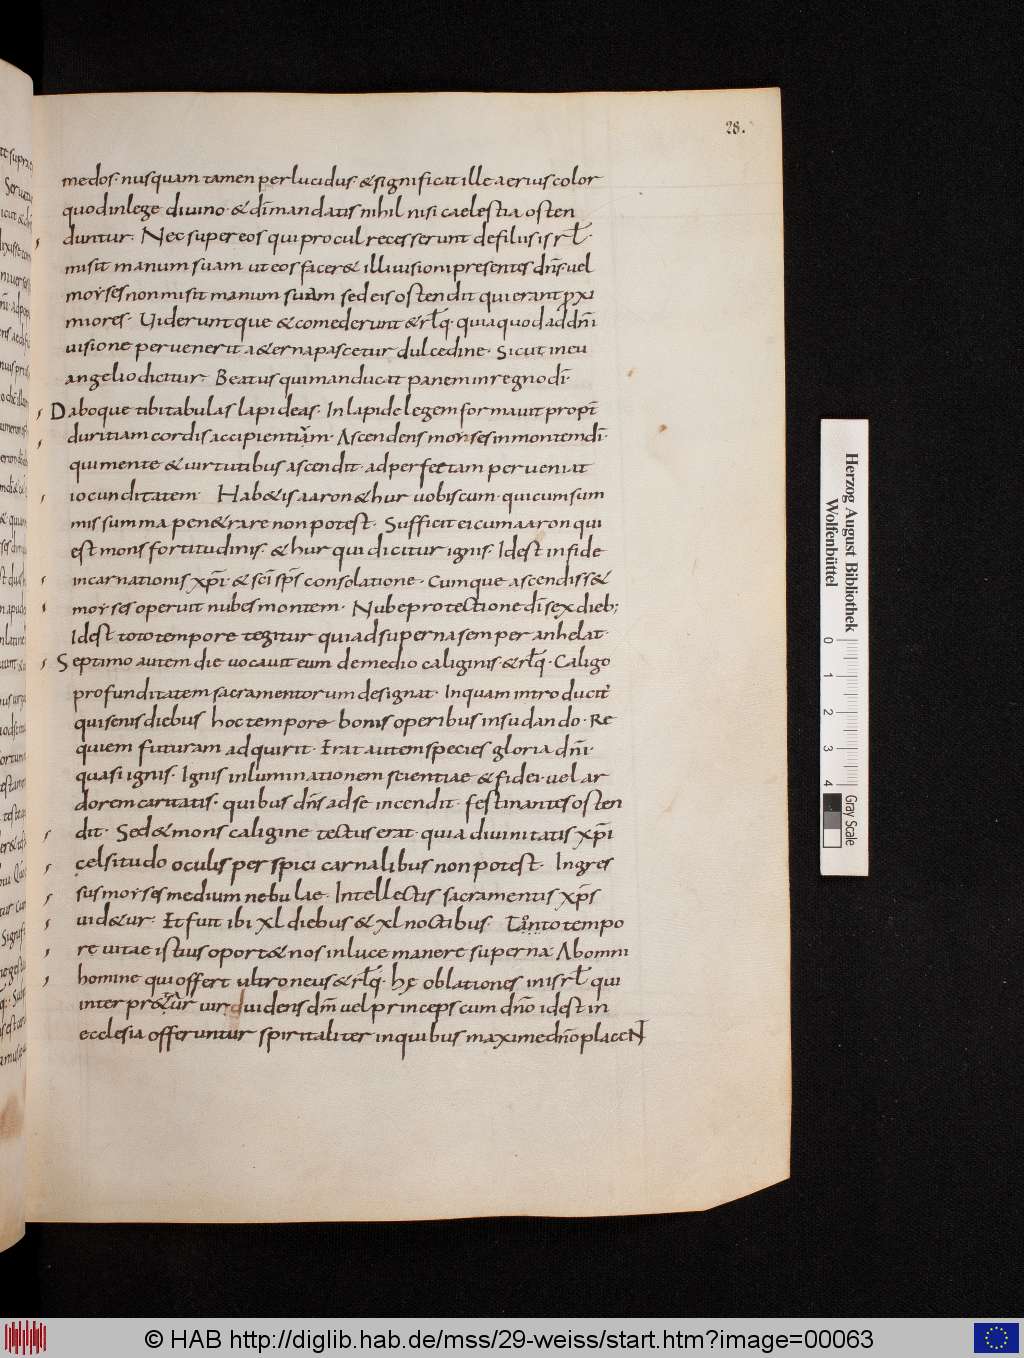 28.
medos· nusquam tamen perlucidus· &significat ille aerius color
quod inlege divino· & dīmandatis nihil nisi caelestia osten
duntur· Nec super eos qui procul recesserunt de filiis isrł·
misit manum suam ut eos facer& illi uisioni presentes dn̄s· uel
moẏses non misit manum suam sed eis ostendit qui erant ꝓxi
miores· Uideruntque & comederunt & rłq· quia quod ad dn̄i
uisione peruenerit a&erna pascetur dulcedine· Sicut in eu
angelio dicitur· Beatus qui manducat panem in regno dī·
Daboque tibi tabulas lapideas· In lapide legem formauit propt̄
duritiam cordis accipientium· Ascendens moẏses in montem dī·
qui mente & uirtutibus ascendit· ad perfectam perueniat
iocunditatem· Hab&is aaron & hur uobiscum· qui cum sum
mis summa pen&rare non potest· Sufficit ei cum aaron qui
est mons fortitudinis· & hur qui dicitur ignis· Idest in fide
incarnationis xp̄i· & sc̄i sp̄s consolatione· Cumque ascendiss&
moẏses operuit nubes montem· Nube protectione dī sex dieb;
Idest toto tempore tegitur qui ad superna semper anhelat·
Septimo autem die uocauit eum de medio caliginis· & rłq̄· Caligo
profunditatem sacramentorum designat· In quam introducit̄
qui senis diebus hoc tempore bonis operibus insudando· Re
quiem futuram adquirit· Erat autem species gloria dn̄i·
quasi ignis· Ignis inluminationem scientiae & fidei· uel ar
dorem caritatis· quibus dn̄s ad se incendit· festinantes osten
dit· Sed & mons caligine tectus erat· quia diuinitatis xp̄i
celsitudo oculis perspici carnalibus non potest· Ingres
sus moẏses medium nebulae· Intellectis sacramentis xp̄s
uid&ur· Et fuit ibi xl diebus & xl noctibus· Tanto tempo
re uitae istius oport& nos in luce manere superna· Ab omni
homine qui offert ultroneus & rłq̄· hę oblationes in isrł qui
interpr&atur uir uidens dm̄ uel princeps cum dn̄o idest in
ecclesia offeruntur spiritaliter in quibus maxime dn̄o placeNT
Herzog August Bibliothek
Wolfenbüttel
0 1 2 3 4
Gray Scale
© HAB http://diglib.hab.de/mss/29-weiss/start.htm?image=00063